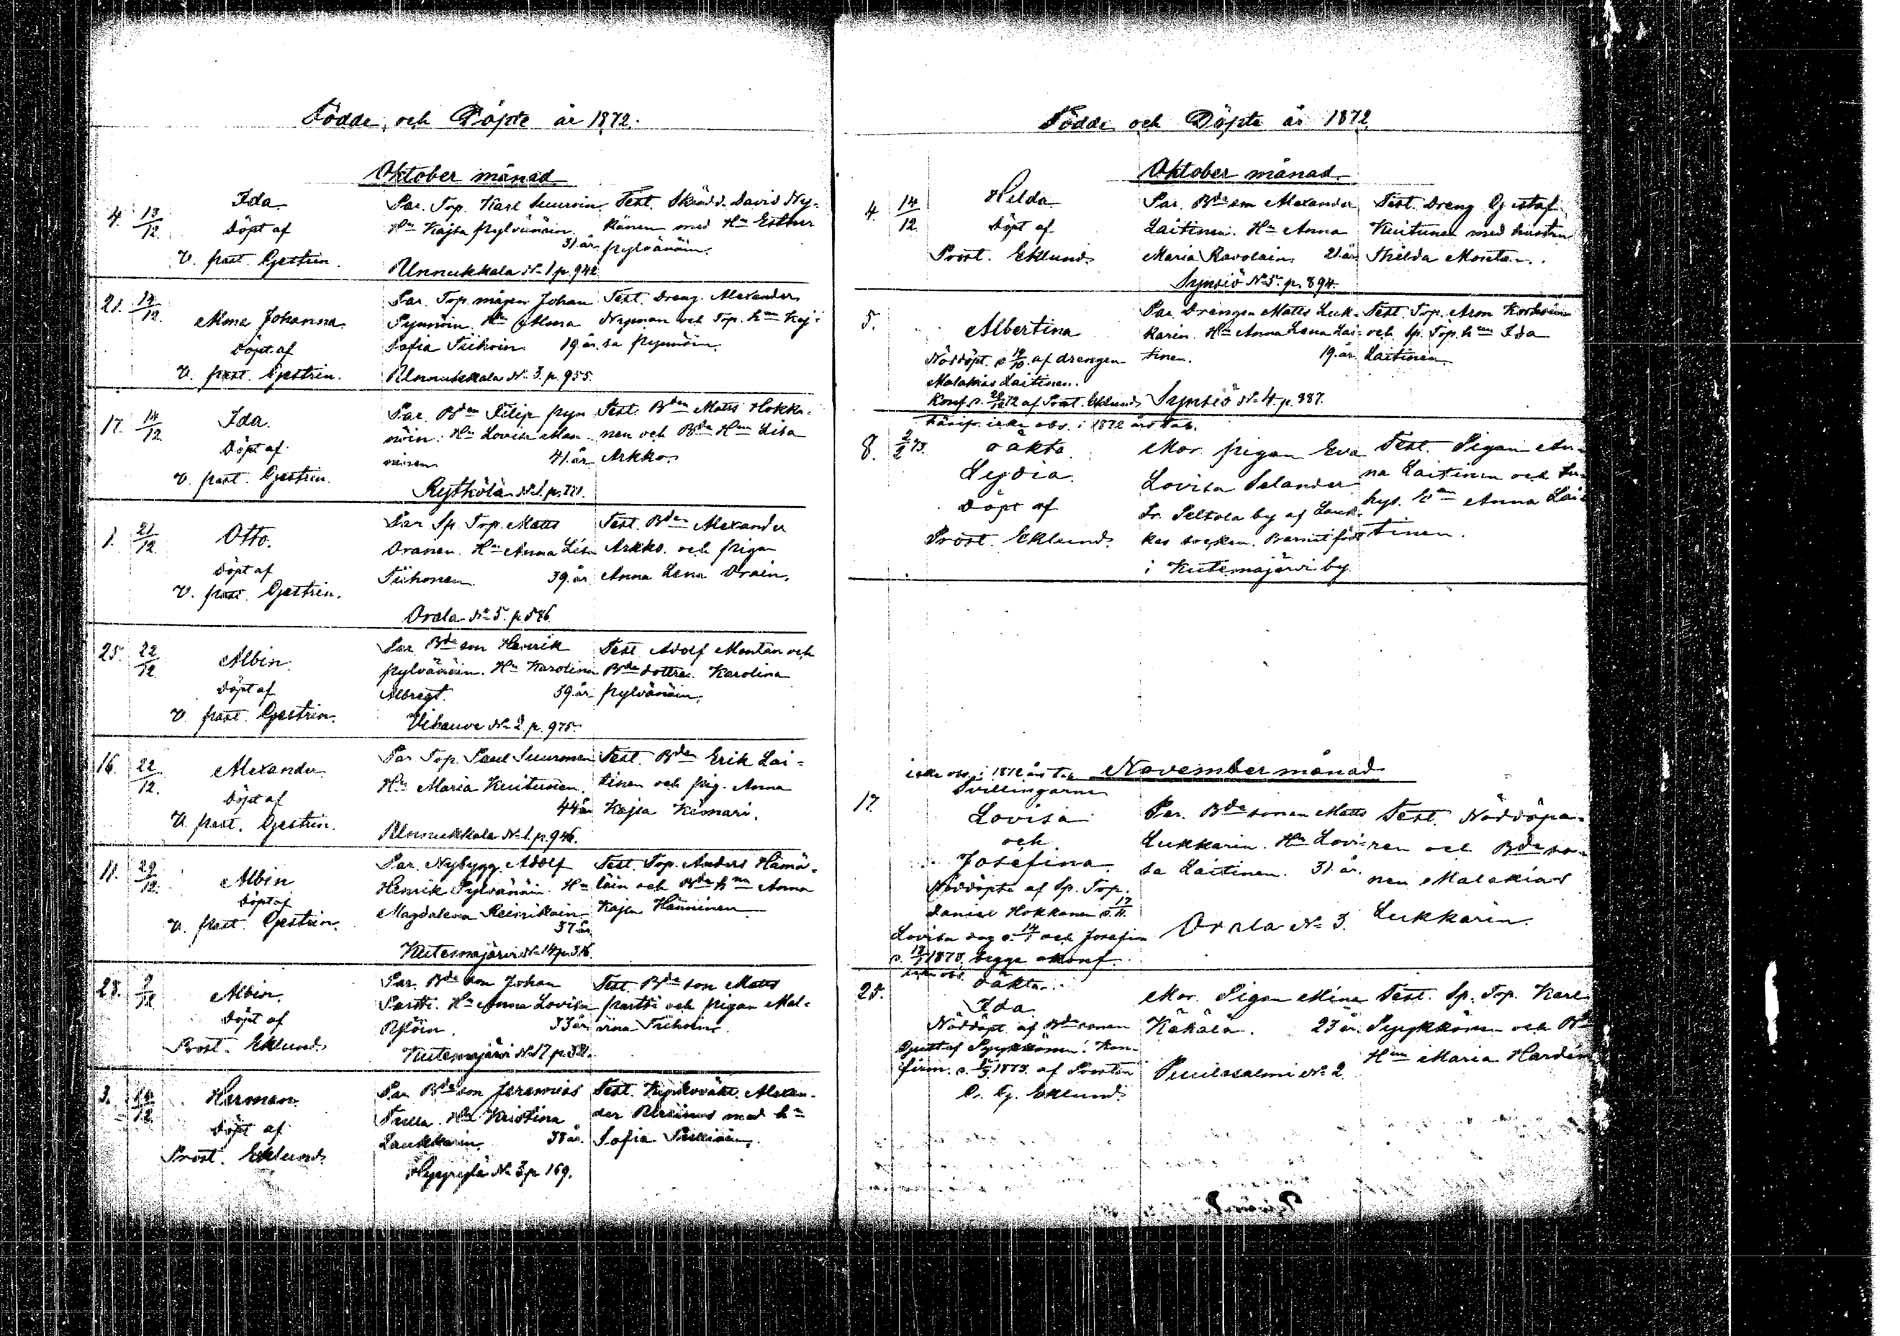 Födde och Döpte år 1872.
Oktober månad
4. 13/12 Ida
Döpt af
V. past. Gestrin.
Par. Torp. Karl Suuroin
Hn Kajsa Pylvänäin
31 år
Unnukkala No 1 p. 942
Test. Skrädd. David Ny-
känen med Hn Esther
Pylvänäin.
21. 14/12 Alma Johanna
Döpt af
V. past. Gestrin.
Par. Torp. mågen Johan
Pynnöin. Hn Alma
Sofia Tiihoin 19 år
Unnukkala No 3. p. 955.
Test. Dreng Alexander
Nyman och Torp. hn Kaj-
sa Pynnöin.
17. 14/12 Ida
Döpt af
V. past. Gestrin
Par. Bden Filip Pyn
nöin. Hn Lovisa
41 år
Rytkölä No 1. p.
Test. Bden Matts Hokka-
nen och Bde Hn Lisa
Arkko.
1. 21/12 Otto.
Döpt af
V. past. Gestrin.
Par Sp. Torp. Matts
Oranen. Hn Anna Lisa
Tiihonen 39 år
Orala No 5. p 586
Test. Bden Alexander
Arkko. och pigan
Anna Lena Orain.
25. 22/12 Albin
Döpt af
V. past. Gestrin.
Par Bde son Henrik
Pylvänäin. Hn Karolina
Albregt. 39 år
Vihauve No 2 p. 975.
Test Adolf Montan och
Bde dottra. Karolina
Pylvänäin.
16. 22/12. Alexander
Döpt af
V. past. Gestrin.
Par Torp. Paul Suuronen
Hn Maria Kuitunen.
44 år
Unnukkala No 1. p. 946.
Test. Bden Erik Lai-
tinen och pig. Anna
Kajsa Kinnari.
11. 29/12. Albin
Döpt af
V. past. Gestrin.
Par. Nybygg. Adolf
Henrik Pylvänäin. Hn
Magdalena Reinikain
37 år
Kutemajärvi No 14 p. 316.
Test. Torp. Anders Hämä-
läin och Bde hna Anna
Kajsa Hänninen
28. Albin.
Döpt af
Prost. Eklund
Par. Bde son Johan
Partti. Hn Anna Lovisa
33 år
Kutemajärvi No 17 p.
Test. Bde son Matts
Partti och pigan Mal-
vina Tiihonen.
3. 14/12 Herman.
Döpt af
Prost. Eklund
Par Bde son Jeremias
Hn Kristina
Laukkarin. 38 år.
Hyyrylä No 3 p 169.
Test. Kyrkovakt. Alexan-
der med hn
Sofia
Födde och Döpte år 1872
Oktober månad
4. 14/12 Hilda
Döpt af
Prost. Eklund
Par. Bde son Alexander
Laitinen. Hn Anna
Maria Ravolain 21 år
Synsiö No 5. p. 894.
Test. Dreng Gustaf
Kuitunen med hustru
Hilda Montan.
5. Albertina
Nöddöpt. af drengen
Malakias Laitinen.
Konf. af Prost. Eklund
Par Drengen Matts Luk-
karin. Hn Anna Lena Lai-
tinen. 19 år
Synsiö No 4. p. 887.
Test. Torp. Aron Korhoinen
och Sp. Torp. hn Ida
Laitinen
icke obs. i 1872 års tab.
8. 2/2 73. oäkta
Lydia
Döpt af
Prost. Eklund.
Mor. pigan Eva
Lovisa Selander
fr. Peltola by af Lauk-
kas socken. Barnet född
i Kutemajärvi by
Test. Pigan An-
na Laitinen och In-
hys. Anna Lai-
tinen.
icke obs. i 1872 års tab November månad
Tvillingarne
17. Lovisa
och
Josefina
Nöddöpte af Sp. Torp.
Daniel Hokkanen d. 17/11.
Lovisa dog d. 14/1 och Josefin
1873. begge okonf.
Par. Bde sonen Matts
Lukkarin. Hn Lovi-
sa Laitinen. 31 år
Orala No 3.
Test. Nöddöpa-
ren och Bde so-
nen Malakias
Lukkarin.
icke obs.
25. oäkta
Ida
Nöddöpt af Bde sonen
Gustaf Pyykkönen. Kon-
firm. 1873. af Prosten
C. G. Eklund
Mor. Pigan Mina
Käkälä. 23 år.
Puulasalmi No 2
Test. Sp. Torp. Karl
Pyykkönen och Bde
Hna Maria Hardin